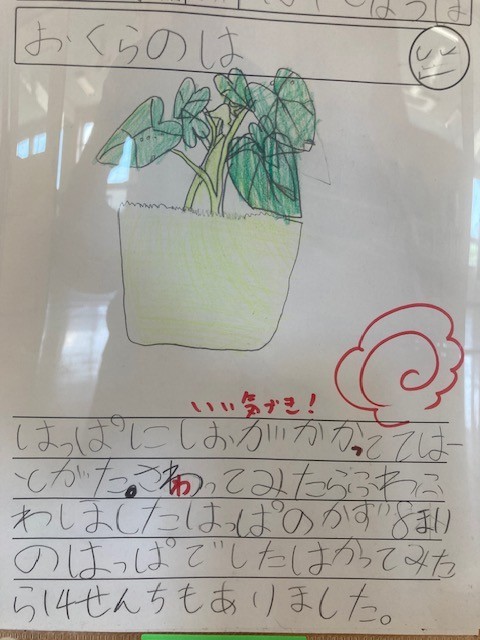 おくらのは
いい気づき!
はっぱにしおがかかってては
とがた。さわってみたらふわふ
わしましたはっぱのかず8まい
のはっぱでしたはかってみた
ら14せんちもありました。